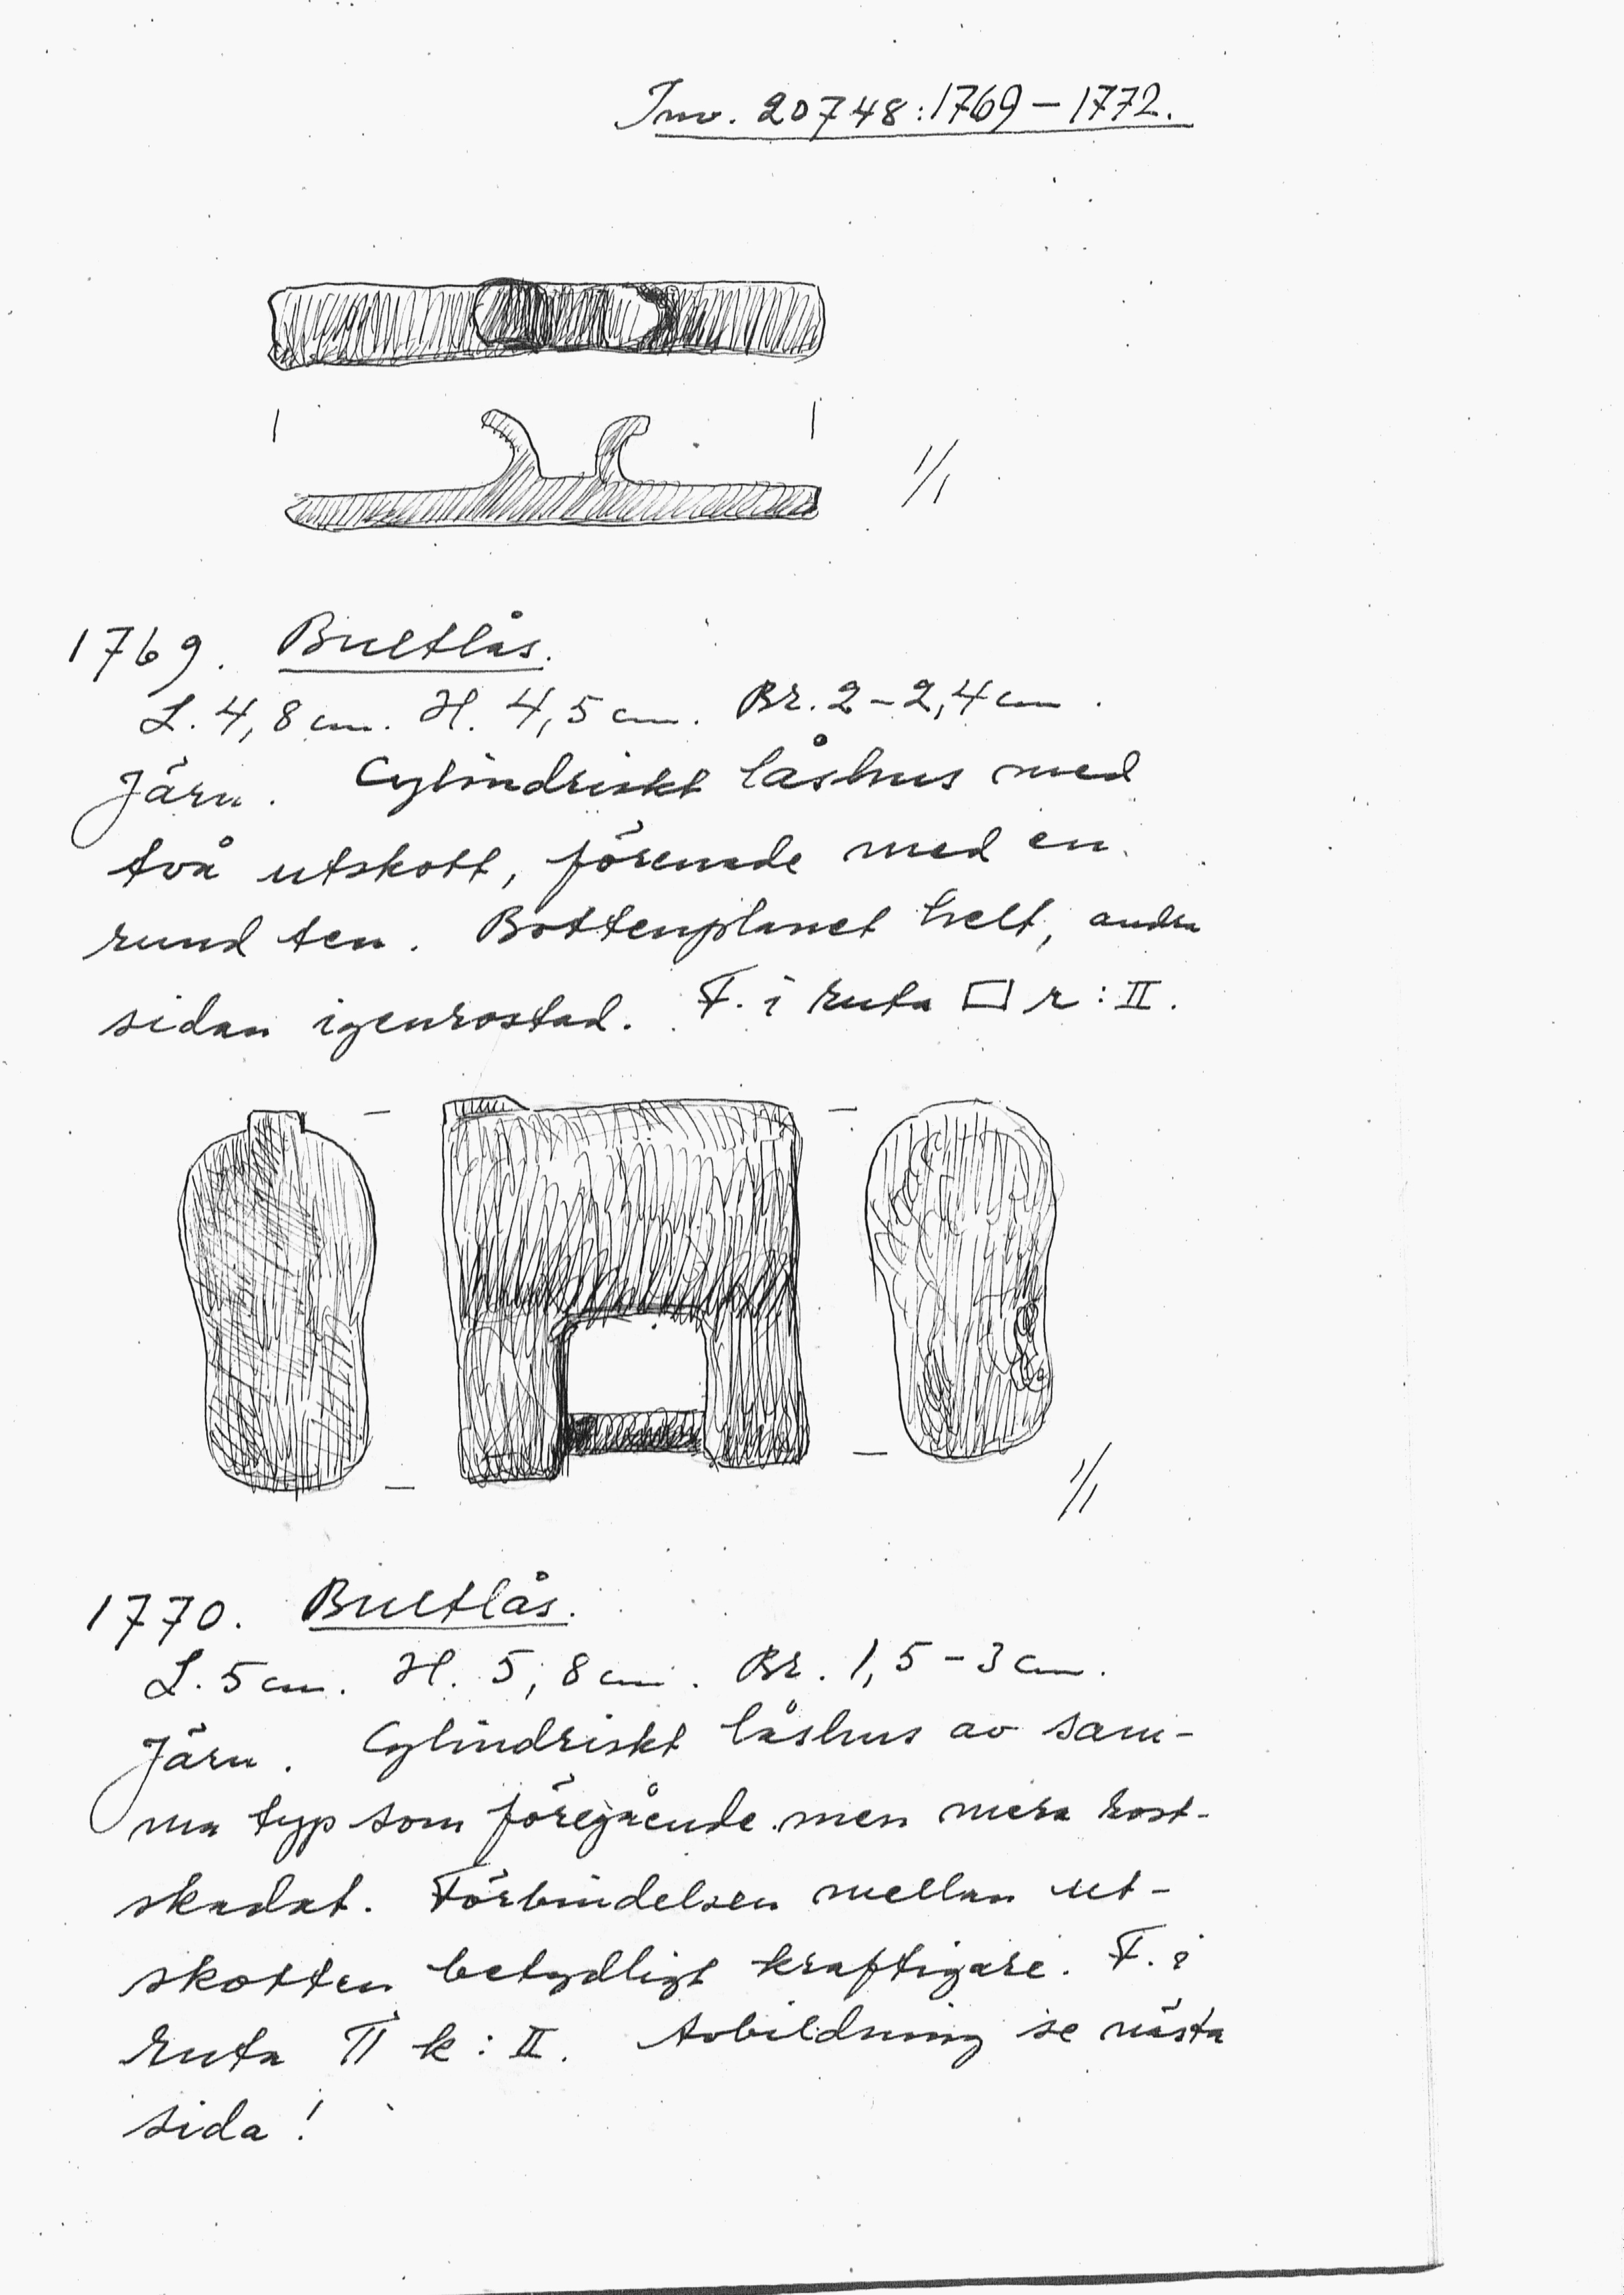 Inv. 20748:1769–1772.
1/1
1769. Bultlås.
L. 4,8 cm. H. 4,5 cm. Br. 2–2,4 cm.
Järn. Cylindriskt låshus med
två utskott, förenade med en
rund ten. Bottenplanet helt, andra
sidan igenrostad. F. i ruta □ r:II.
1/1
1770. Bultlås.
L. 5 cm. H. 5,8 cm. Br. 1,5–3 cm.
Järn. Cylindriskt låshus av sam-
ma typ som föregående men mera rost-
skadat. Förbindelsen mellan ut-
skotten betydligt kraftigare. F. i
ruta k:II. Avbildning se nästa
sida!